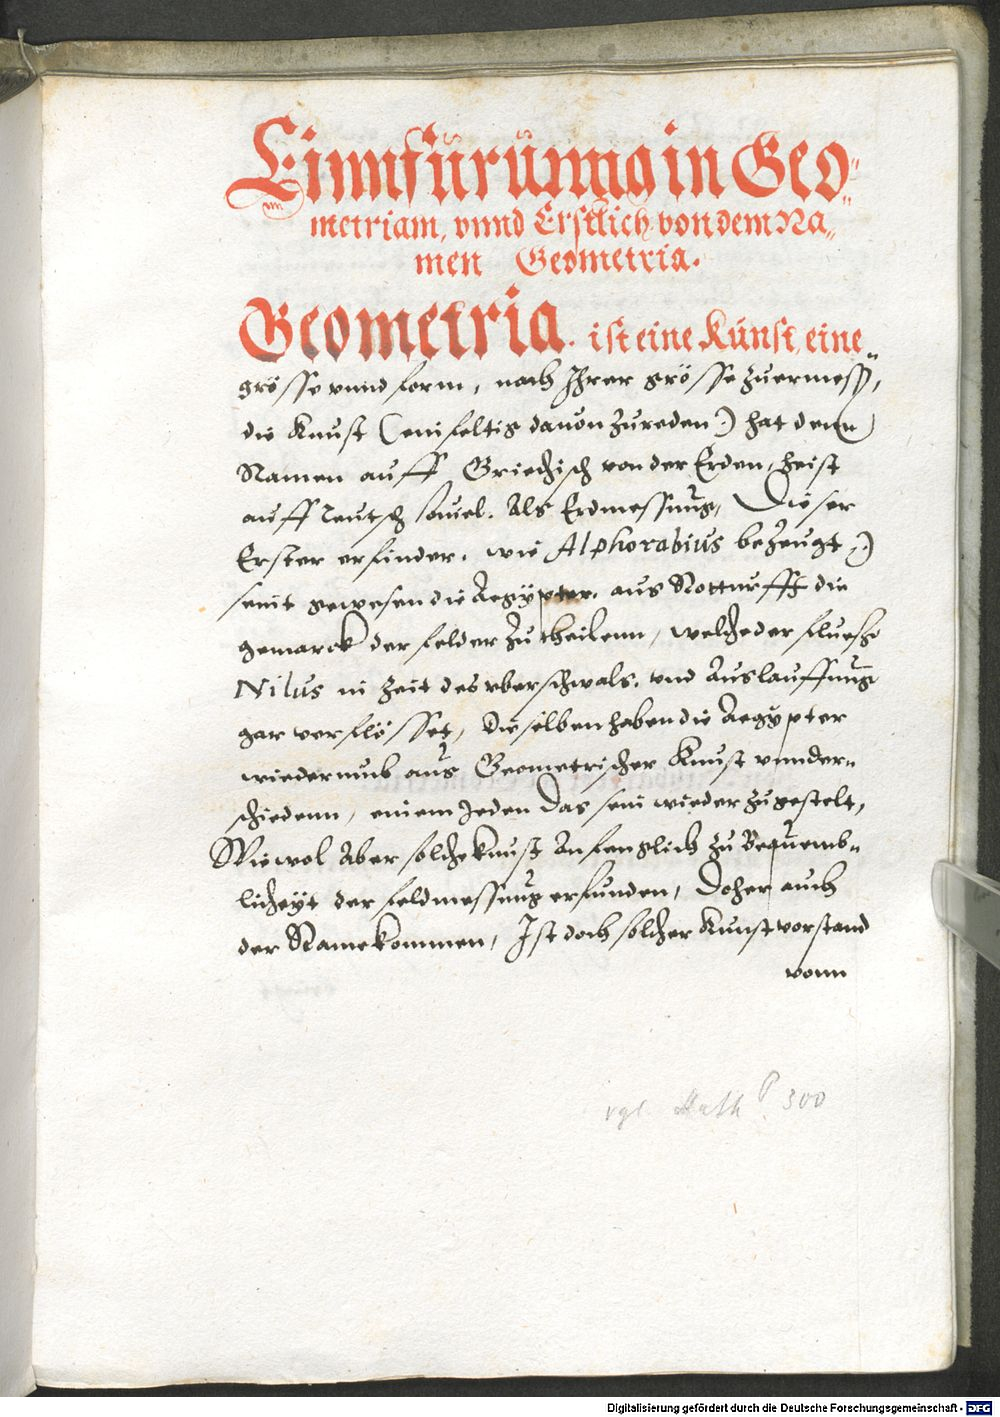 Einnfürünng in Geo-
metriam, vnnd Erstlich von dem Na-
men Geometria.
Geometria. ist eine Kúnst, eine
grösse vnnd form, nach Ihrer grösse zuermess,
die Kunst (einfeltig dauon zureden.) hat denn
Namen auff Griechisch von der Erden, heist
auff Teutsch souiel. Als Erdmessung, Dieser
Erster erfinder. wie Alphorabius bezeugt,)
seint gewesen die Aegypter. aus Notturfft die
gemarck der felder zu theilenn, welche der fluess
Nilus in zeit des vberschwals. vnd Auslauffung
gar verflösset, Dieselben haben die Aegypter
wiederumb aus Geometrischer Kunst vnnder-
schiedenn, einem Jeden das sein wieder zugestelt,
Wiewol Aber solche kunst Anfenglich zu Bequemb-
licheyt der feldmessung erfunden, Doher auch
der Name kommen, Ist doch solcher Kunst vorstand
vonn
vgl. Math P. 300
Digitalisierung gefördert durch die Deutsche Forschungsgemeinschaft - DFG